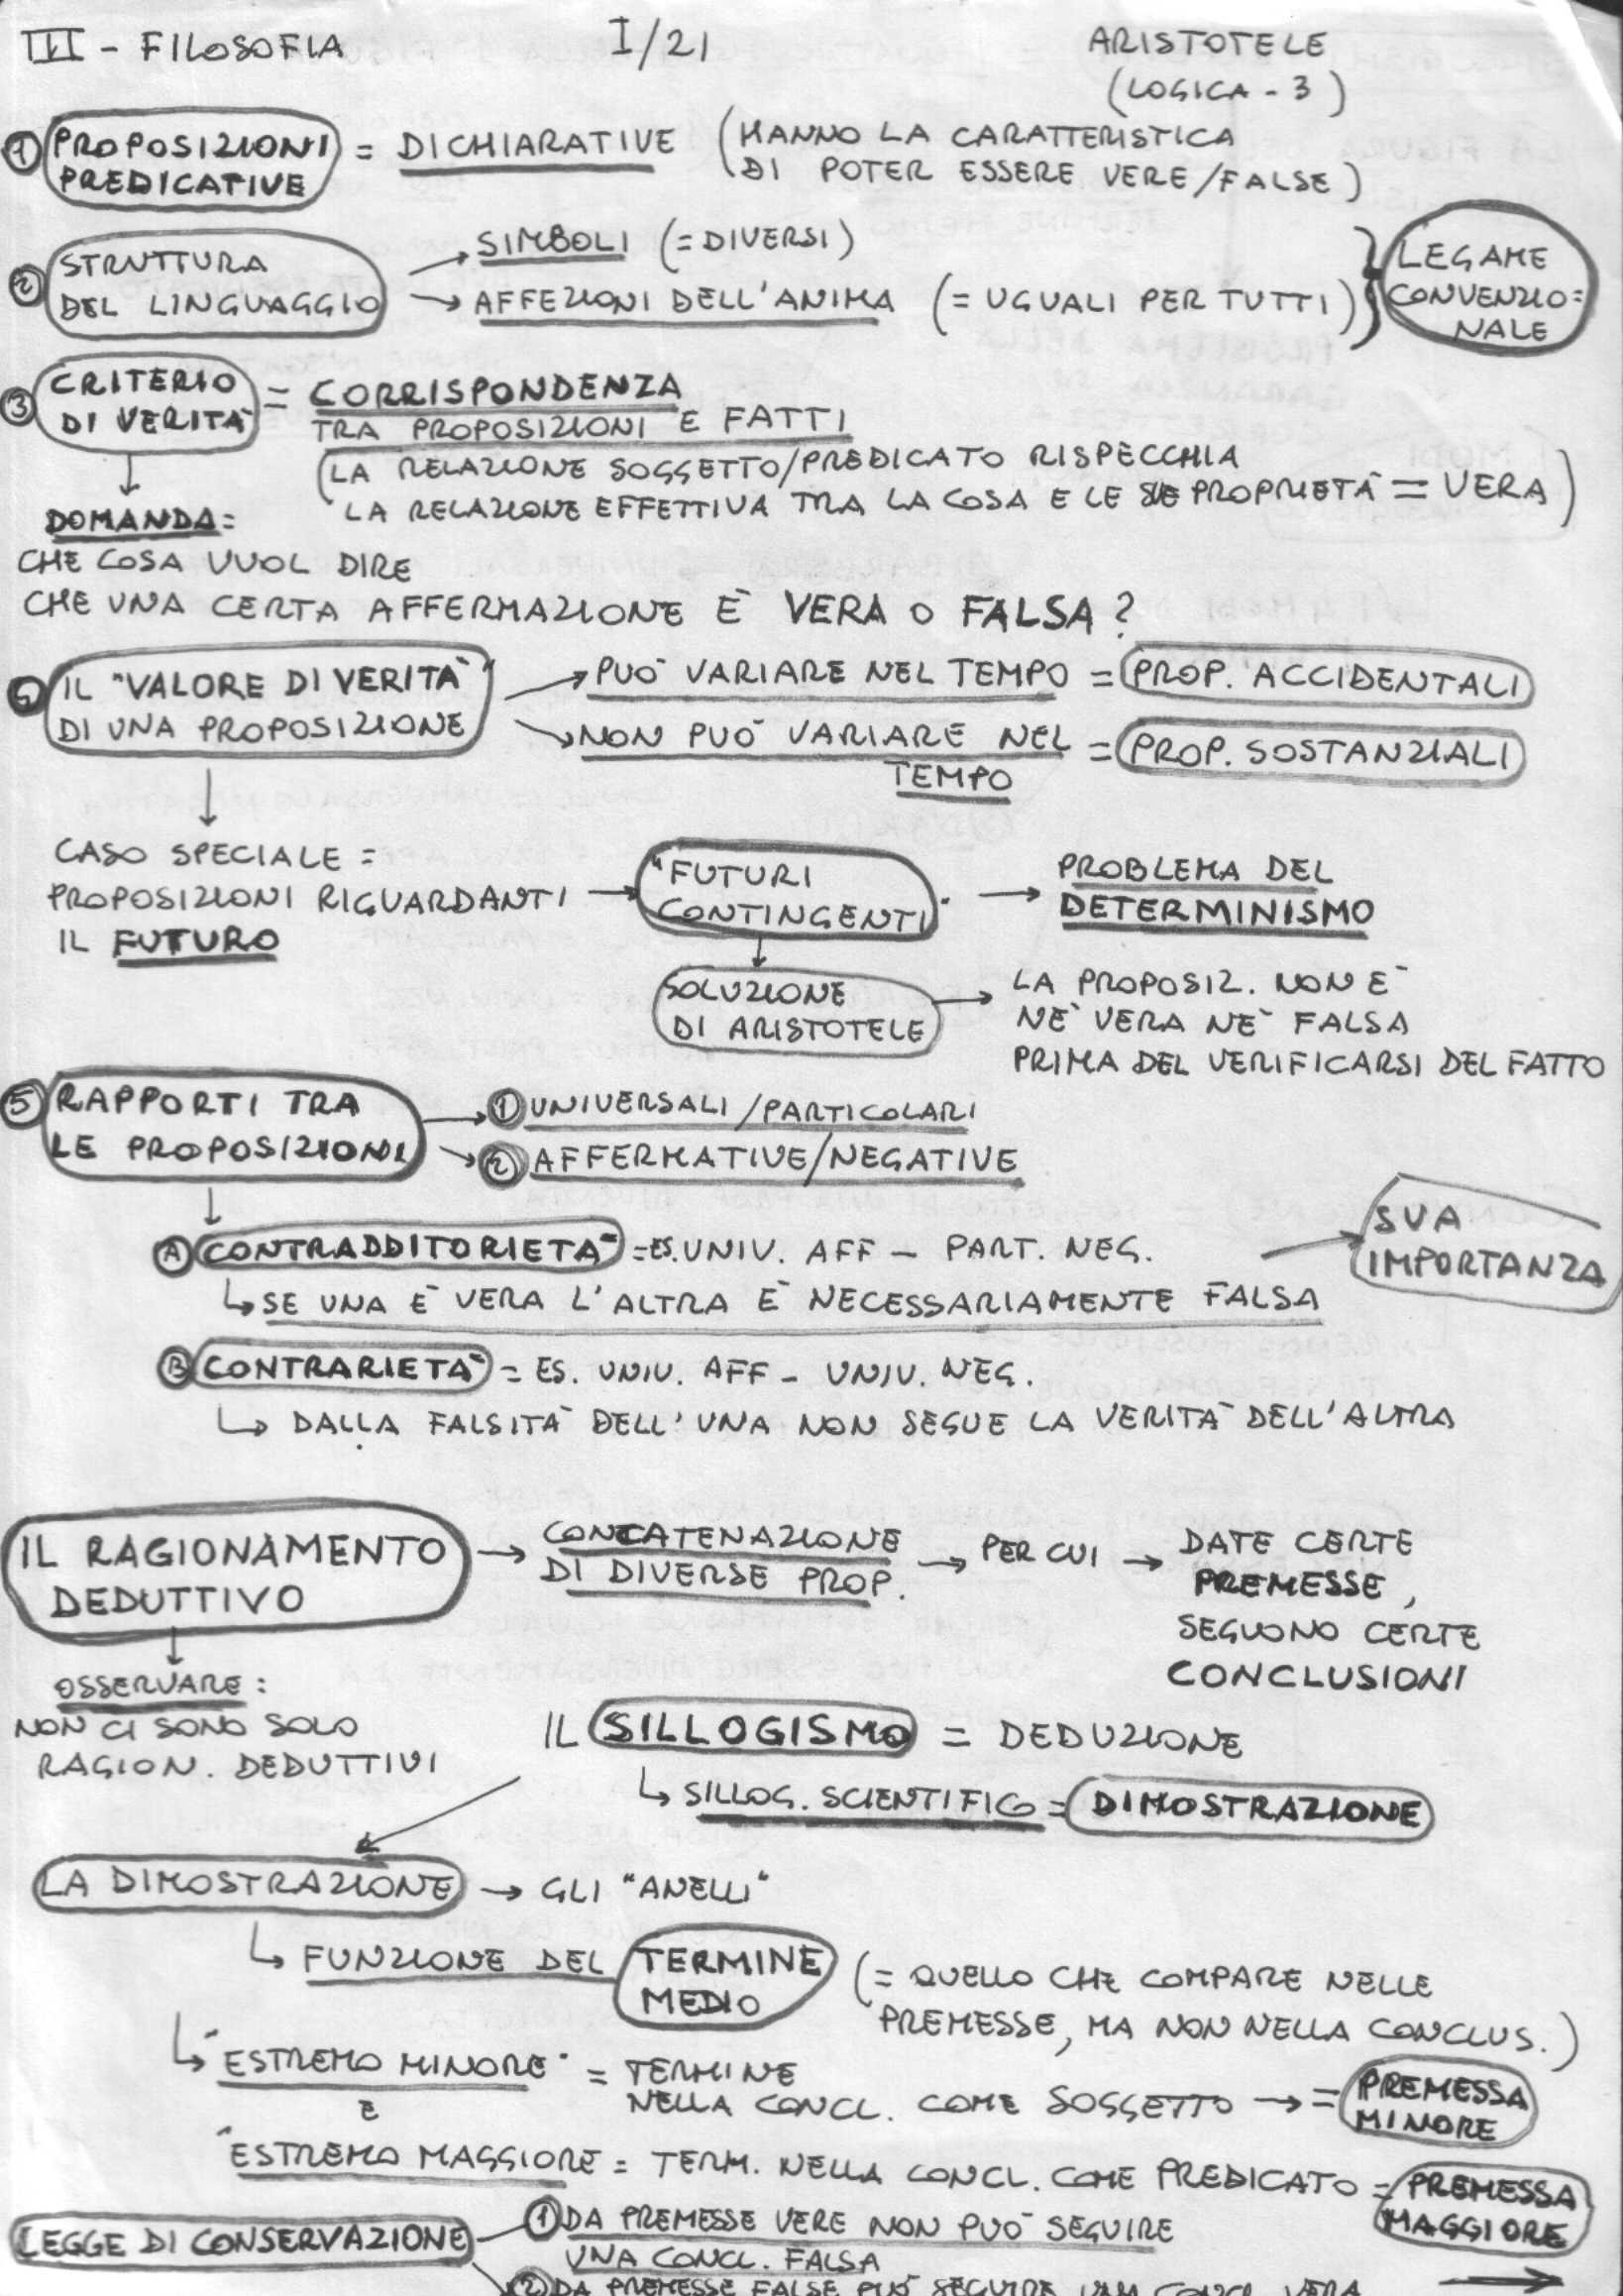 III - FILOSOFIA I/21 ARISTOTELE
(LOGICA - 3)
① PROPOSIZIONI PREDICATIVE = DICHIARATIVE (HANNO LA CARATTERISTICA
DI POTER ESSERE VERE/FALSE)
② STRUTTURA DEL LINGUAGGIO
→ SIMBOLI (= DIVERSI)
→ AFFEZIONI DELL'ANIMA (= UGUALI PER TUTTI)
} LEGAME
CONVENZIO=
NALE
③ CRITERIO
DI VERITÀ = CORRISPONDENZA
TRA PROPOSIZIONI E FATTI
(LA RELAZIONE SOGGETTO/PREDICATO RISPECCHIA
LA RELAZIONE EFFETTIVA TRA LA COSA E LE SUE PROPRIETÀ = VERA)
↓
DOMANDA =
CHE COSA VUOL DIRE
CHE UNA CERTA AFFERMAZIONE È VERA O FALSA?
④ IL "VALORE DI VERITÀ"
DI UNA PROPOSIZIONE
→ PUÒ VARIARE NEL TEMPO = PROP. ACCIDENTALI
→ NON PUÒ VARIARE NEL = PROP. SOSTANZIALI
TEMPO
↓
CASO SPECIALE =
PROPOSIZIONI RIGUARDANTI →
IL FUTURO
"FUTURI
CONTINGENTI" →
PROBLEMA DEL
DETERMINISMO
↓
SOLUZIONE
DI ARISTOTELE →
LA PROPOSIZ. NON È
NÈ VERA NÈ FALSA
PRIMA DEL VERIFICARSI DEL FATTO
⑤ RAPPORTI TRA
LE PROPOSIZIONI
→ ① UNIVERSALI/PARTICOLARI
→ ② AFFERMATIVE/NEGATIVE
↓
Ⓐ CONTRADDITORIETÀ = ES. UNIV. AFF - PART. NEG. →
SUA
IMPORTANZA
↳ SE UNA È VERA L'ALTRA È NECESSARIAMENTE FALSA
Ⓑ CONTRARIETÀ = ES. UNIV. AFF - UNIV. NEG.
↳ DALLA FALSITÀ DELL'UNA NON SEGUE LA VERITÀ DELL'ALTRA
IL RAGIONAMENTO
DEDUTTIVO →
CONCATENAZIONE
DI DIVERSE PROP.
→ PER CUI →
DATE CERTE
PREMESSE,
SEGUONO CERTE
CONCLUSIONI
↓
OSSERVARE:
NON CI SONO SOLO
RAGION. DEDUTTIVI
IL SILLOGISMO = DEDUZIONE
↳ SILLOG. SCIENTIFICO = DIMOSTRAZIONE
LA DIMOSTRAZIONE → GLI "ANELLI"
↳ FUNZIONE DEL TERMINE
MEDIO
(= QUELLO CHE COMPARE NELLE
PREMESSE, MA NON NELLA CONCLUS.)
↳ "ESTREMO MINORE" = TERMINE
NELLA CONCL. COME SOGGETTO → = PREMESSA
MINORE
E
"ESTREMO MAGGIORE = TERM. NELLA CONCL. COME PREDICATO = PREMESSA
MAGGIORE
LEGGE DI CONSERVAZIONE
① DA PREMESSE VERE NON PUÒ SEGUIRE
UNA CONCL. FALSA
② DA PREMESSE FALSE PUÒ SEGUIRE UNA CONCL. VERA
→